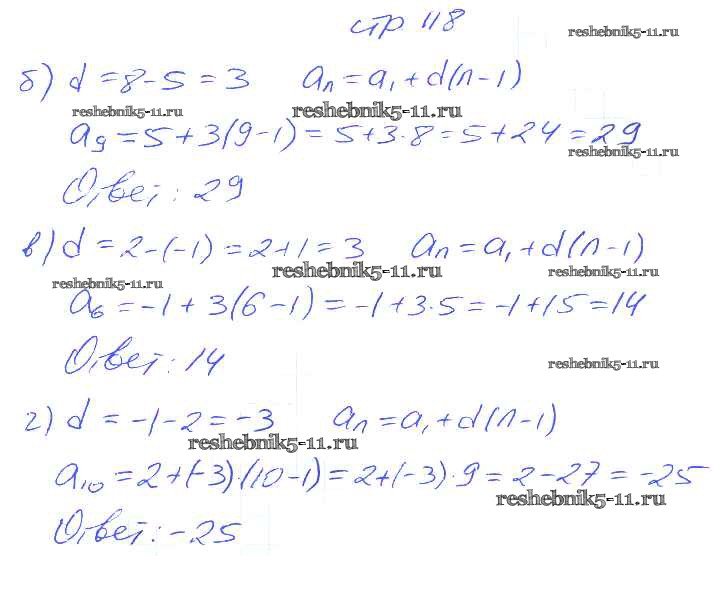 стр 118
reshebnik5-11.ru
б) d = 8 - 5 = 3 aₙ = a₁ + d(n - 1)
reshebnik5-11.ru reshebnik5-11.ru
a₉ = 5 + 3(9 - 1) = 5 + 3 · 8 = 5 + 24 = 29
reshebnik5-11.ru
Ответ: 29
в) d = 2 - (-1) = 2 + 1 = 3 aₙ = a₁ + d(n - 1)
reshebnik5-11.ru reshebnik5-11.ru
reshebnik5-11.ru
a₆ = -1 + 3(6 - 1) = -1 + 3 · 5 = -1 + 15 = 14
Ответ: 14
reshebnik5-11.ru
г) d = -1 - 2 = -3 aₙ = a₁ + d(n - 1)
reshebnik5-11.ru
a₁₀ = 2 + (-3) · (10 - 1) = 2 + (-3) · 9 = 2 - 27 = -25
reshebnik5-11.ru
Ответ: -25